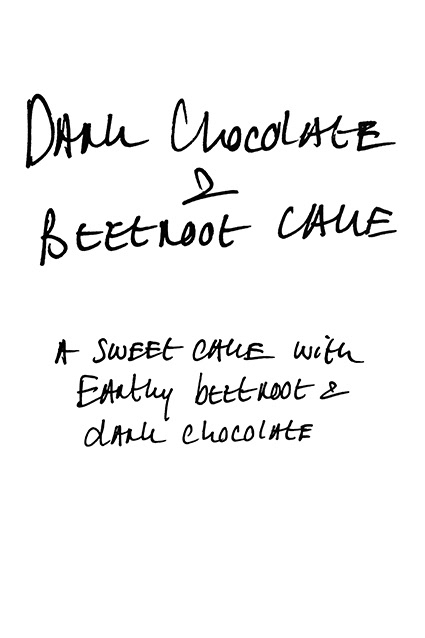 Dark Chocolate
&
Beetroot Cake
A sweet cake with
Earthy beetroot &
dark chocolate